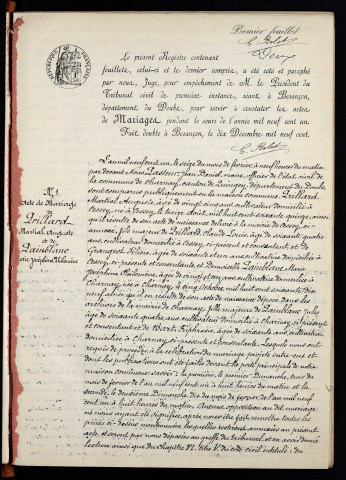 Premier feuillet
Le présent Registre contenant
feuillets, celui-ci et le dernier compris, a été coté et paraphé
par nous, Juge, pour empêchement de M. le Président du
Tribunal civil de première instance, séant à Besançon,
département du Doubs, pour servir à constater les actes
de Mariages pendant le cours de l'année mil neuf cent un.
Fait double à Besançon, le dix Décembre mil neuf cent.
N° 1
Acte de Mariage
de
Martial Auguste
et de
L'an mil neuf cent un, le seize du mois de février, à neuf heures du matin
par devant Nous Pasteur, Jean Daniel, maire, officier de l'état civil de
la commune de Charnay, canton de Quingey, département du Doubs,
sont comparus publiquement en la maison commune
Martial Auguste, âgé de vingt cinq ans, cultivateur domicilié à
Cessey, né à Cessey, le
qu'il résulte de son acte de naissance délivré à la mairie de Cessey,
Claude Louis, âgé de soixante quatre
ans, cultivateur domicilié à Cessey, ci présent et consentant et de
âgée de soixante et un ans cultivatrice domiciliée à
Cessey, ci présente et consentante, et Demoiselle
Joséphine Philomène, âgée de vingt et un ans, cultivatrice domiciliée à
Charnay, née à Charnay, le cinq octobre mil huit cent soixante dix
neuf, ainsi qu'il en résulte de son acte de naissance déposé dans les
archives de la commune de Charnay, fille majeure de
âgé de soixante quatre ans, cultivateur domicilié à Charnay, ci présent
et consentant et de
domiciliée à Charnay, ci présente et consentante. Lesquels nous ont
requis de procéder à la célébration du mariage projeté entre eux et
dont les publications ont été faites devant la porte principale de notre
maison commune, savoir : la première, le premier Dimanche, trois du
mois de février de l'an mil neuf cent un à huit heures du matin et la
seconde, le deuxième Dimanche, dix du mois de février de l'an mil neuf
cent un à huit heures du matin. Aucune opposition au dit mariage
ne nous ayant été signifiée, après nous être fait remettre toutes les
pièces ci-dessus mentionnées, lesquelles resteront annexées au présent
acte et seront par nous déposées au greffe du tribunal, et en avoir donné
lecture ainsi que du Chapitre VI, titre V du code civil intitulé : du